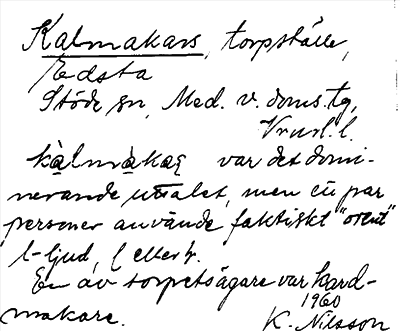 Kalmakars, torpställe,
Edsta
Stöde sn, Med. v. doms.tg,
Vnrl. l.
kàlmàkaʂ var det domi-
nerande uttalet, men ett par
personer använde faktiskt "orent"
l-ljud, l efter r.
En av torpets ägare var kard-
makare. 1960
K. Nilsson